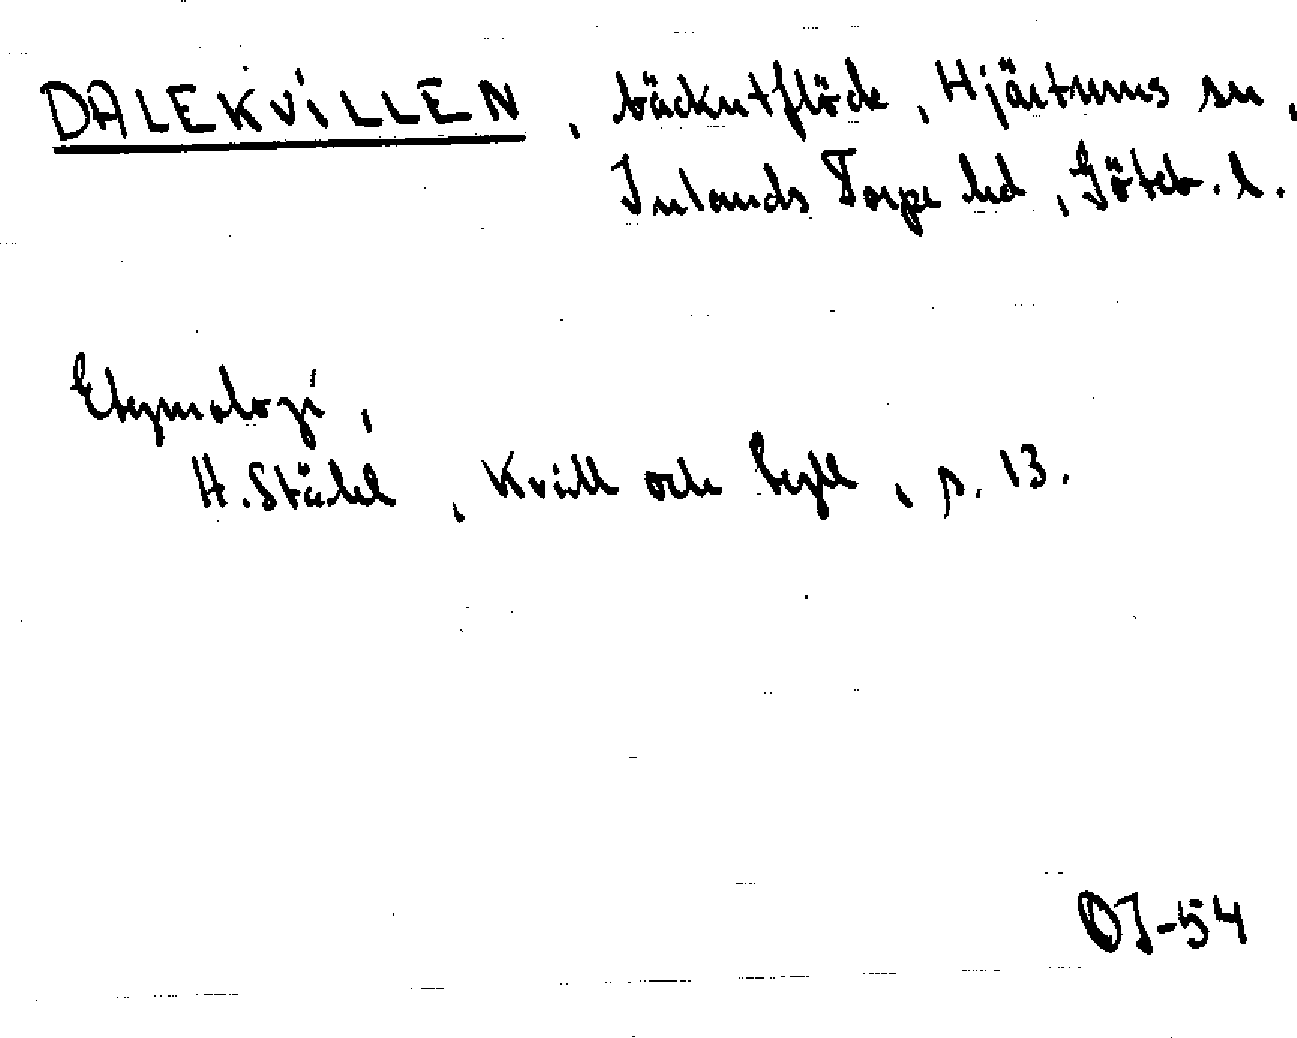 DALEKVILLEN, bäckutflöde, Hjärtums sn,
Inlands Torpe hd, Göteb. l.
Etymologi,
H. Ståhl, Kvill och tyll, p. 13.
OJ-54